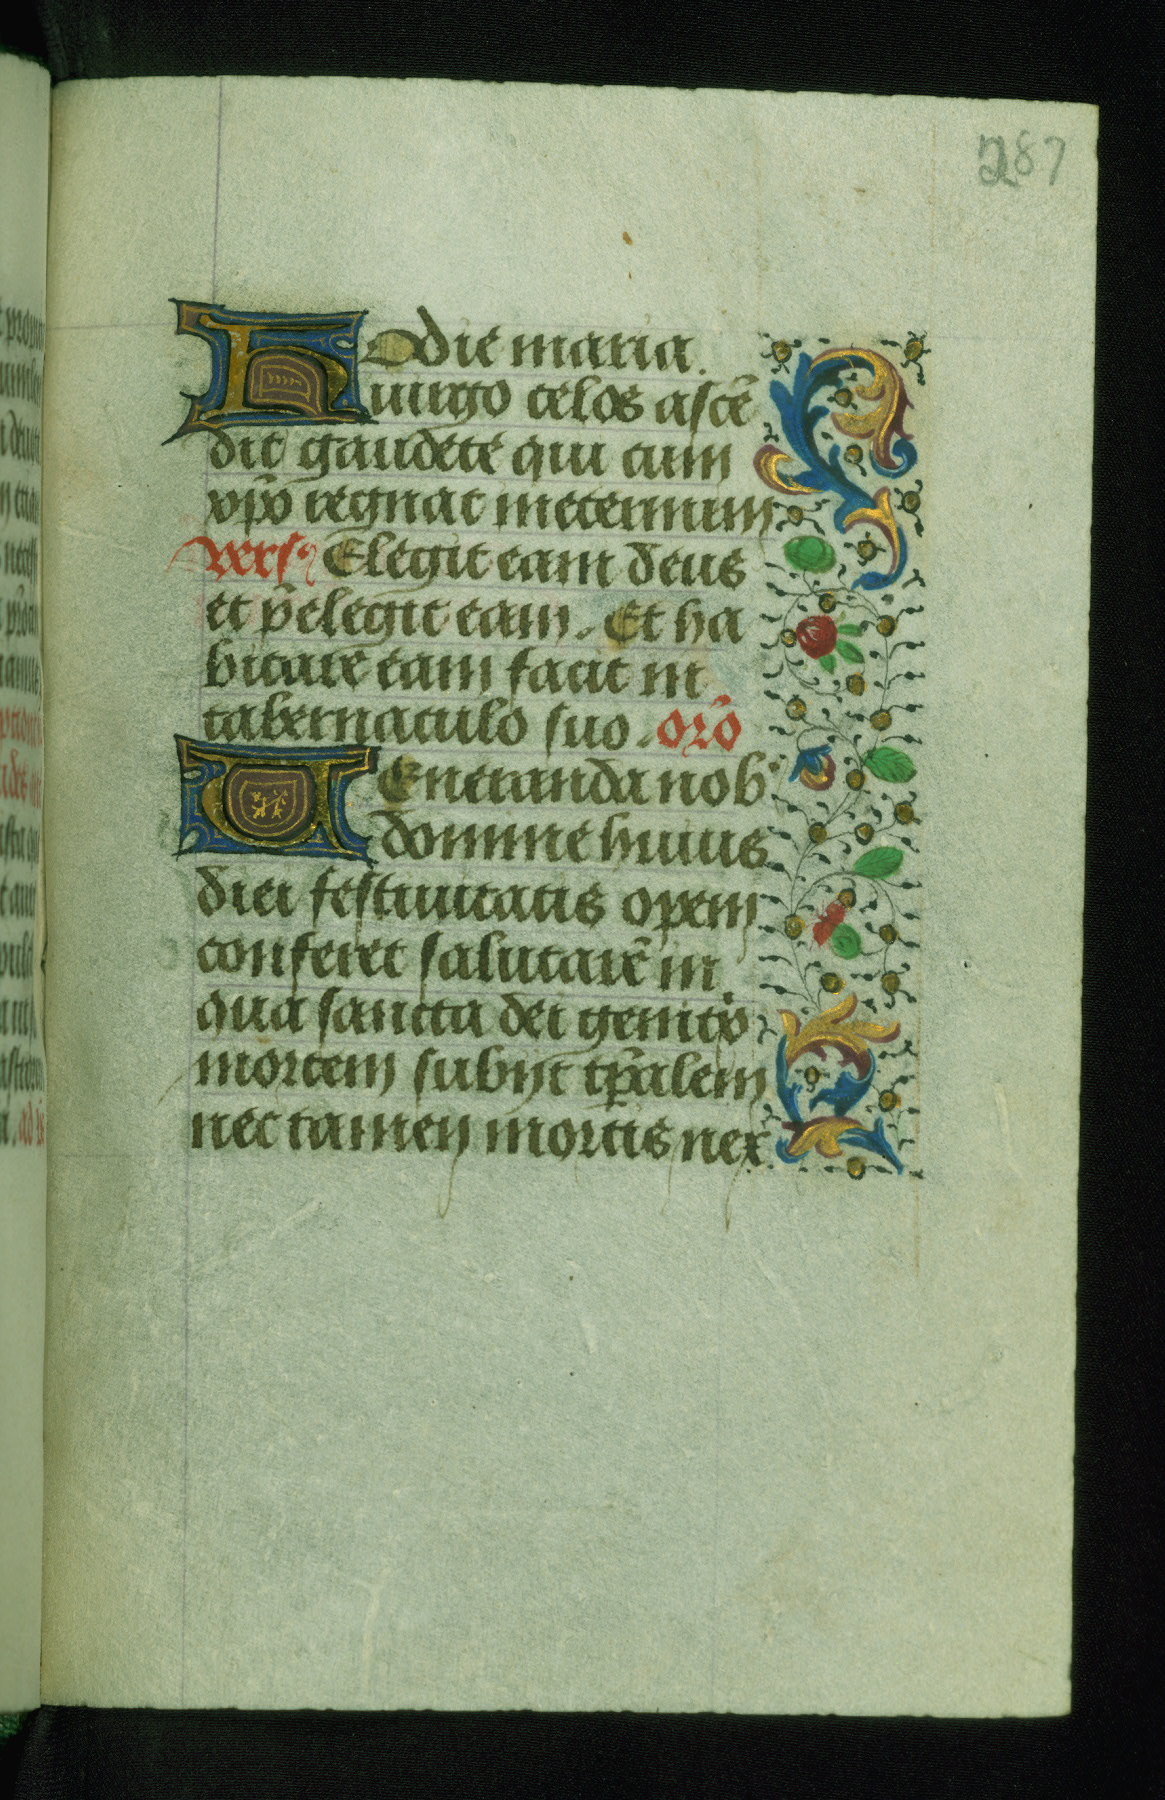 287
Hodie maria
uirgo celos ascē
dit gaudete qui cum
xp̄o regnat ineternum
Vers᷒ Elegit eam deus
et p̄elegit eam. Et ha
bitare eam facit in
tabernaculo suo. or̄o
Veneranda nob᷒
domine huius
diei festiuitatis opem
conferet salutarē in
qua sancta dei genitͥx
mortem subijt tp̄alem
nec tamen mortis nex